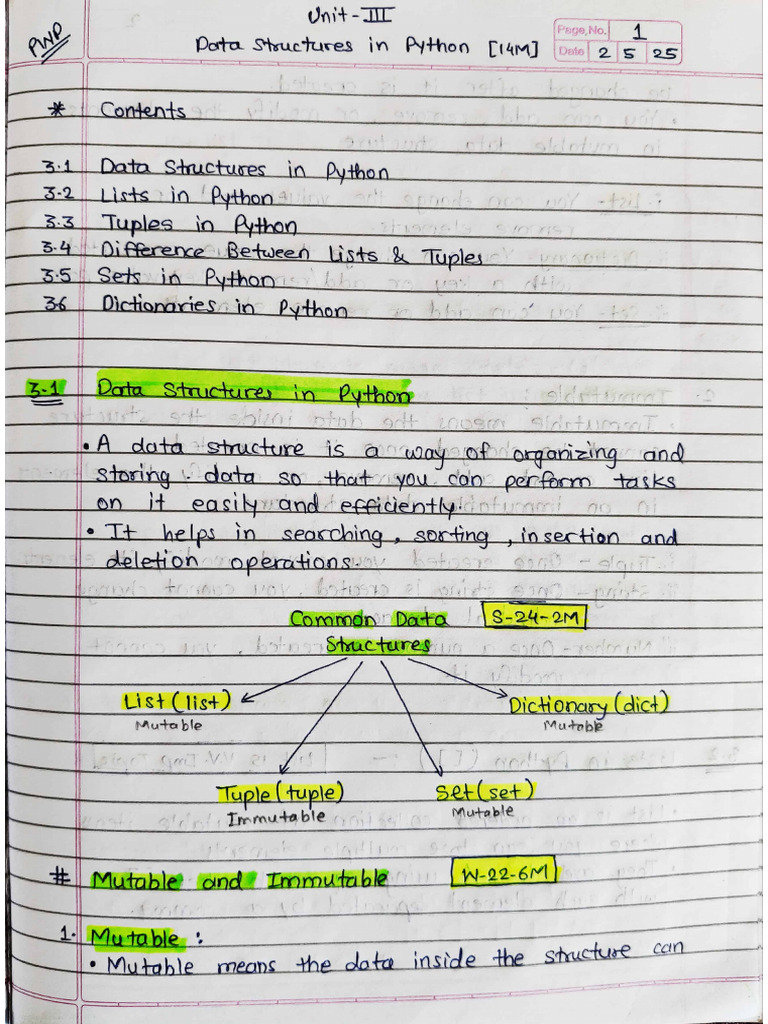 PWP
Unit-III
Data Structures in Python [14M]
Page No. 1
Date 2 5 25
* Contents
3.1 Data Structures in Python
3.2 Lists in Python
3.3 Tuples in Python
3.4 Difference Between Lists & Tuples
3.5 Sets in Python
3.6 Dictionaries in Python
3.1 Data Structures in Python
• A data structure is a way of organizing and
storing data so that you can perform tasks
on it easily and efficiently.
• It helps in searching, sorting, insertion and
deletion operations.
Common Data S-24-2M
Structures
List (list) Dictionary (dict)
Mutable Mutable
Tuple (tuple) Set (set)
Immutable Mutable
# Mutable and Immutable W-22-6M
1. Mutable :
• Mutable means the data inside the structure can